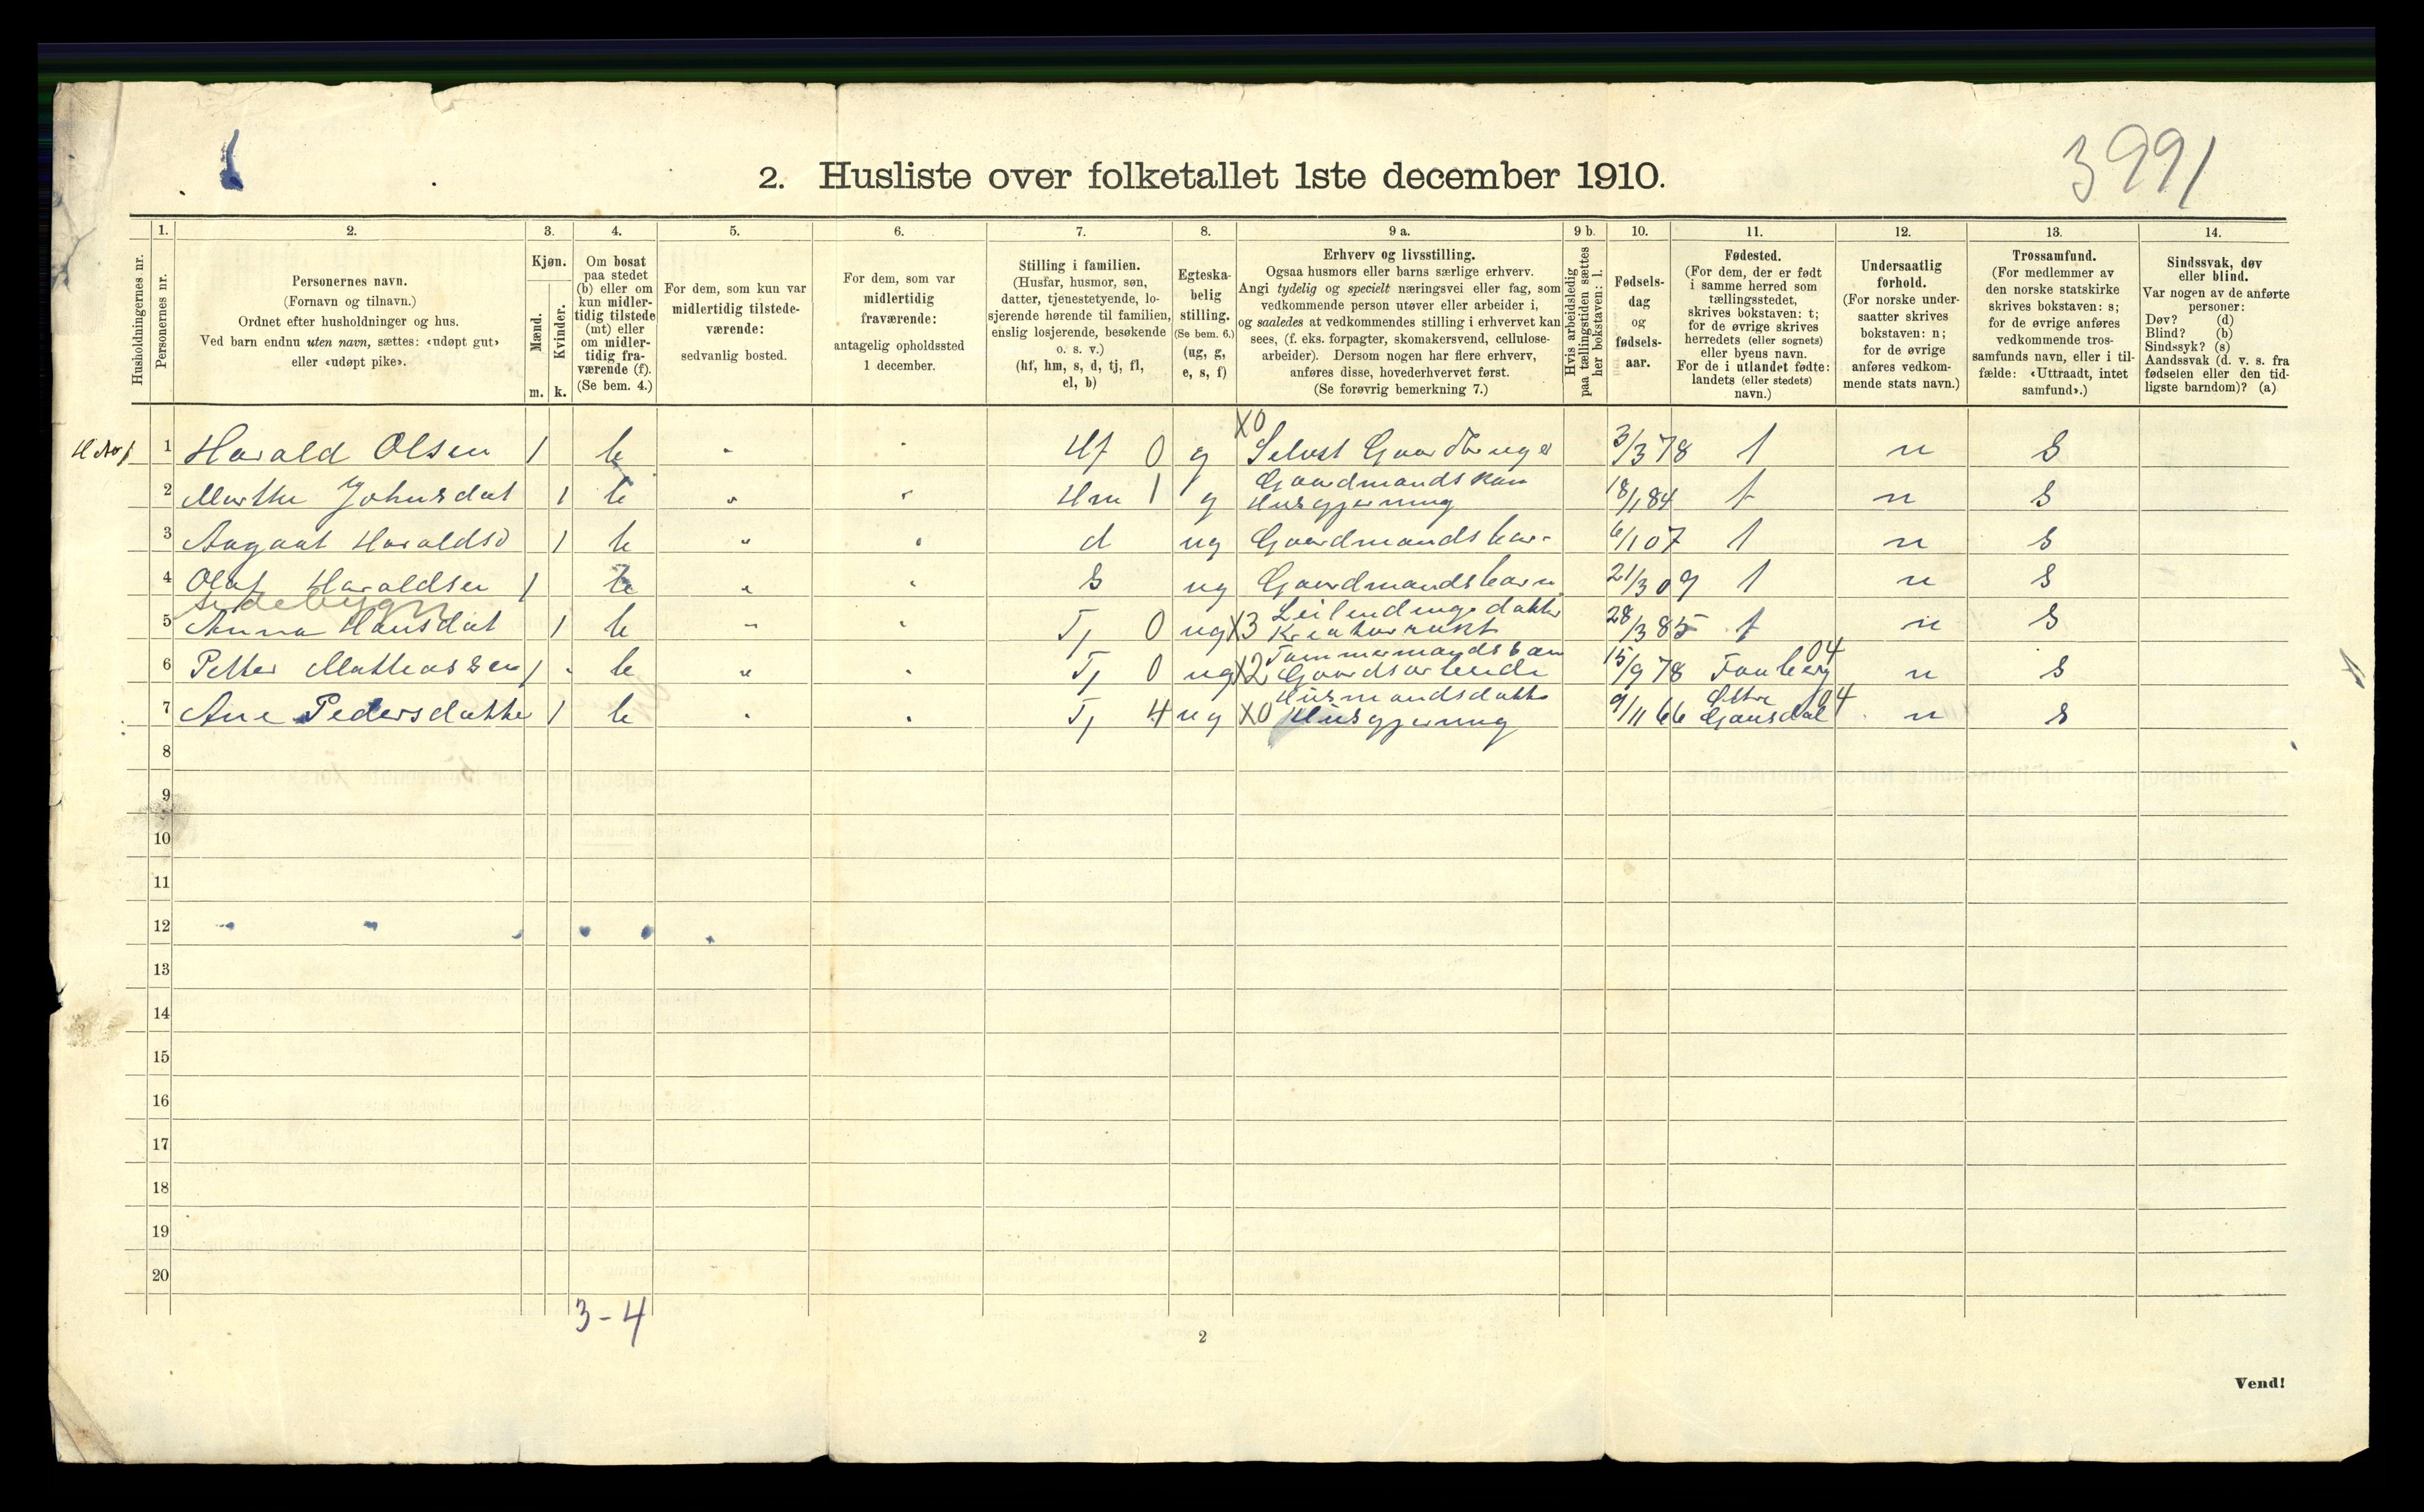 3991
2. Husliste over folketallet 1ste december 1910.
1. 2. 3. 4. 5. 6. 7. 8. 9 a. 9 b. 10. 11. 12. 13. 14.
Husholdningernes nr.
Personernes nr.
Personernes navn.
(Fornavn og tilnavn.)
Ordnet efter husholdninger og hus.
Ved barn endnu uten navn, sættes: «udøpt gut»
eller «udøpt pike».
Kjøn.
Mænd.
Kvinder.
m. k.
Om bosat
paa stedet
(b) eller om
kun midler-
tidig tilstede
(mt) eller
om midler-
tidig fra-
værende (f).
(Se bem. 4.)
For dem, som kun var
midlertidig tilstede-
værende:
sedvanlig bosted.
For dem, som var
midlertidig
fraværende:
antagelig opholdssted
1 december.
Stilling i familien.
(Husfar, husmor, søn,
datter, tjenestetyende, lo-
sjerende hørende til familien,
enslig losjerende, besøkende
o. s. v.)
(hf, hm, s, d, tj, fl,
el, b)
Egteska-
belig
stilling.
(Se bem. 6.)
(ug, g,
e, s, f)
Erhverv og livsstilling.
Ogsaa husmors eller barns særlige erhverv.
Angi tydelig og specielt næringsvei eller fag, som
vedkommende person utøver eller arbeider i,
og saaledes at vedkommendes stilling i erhvervet kan
sees, (f. eks. forpagter, skomakersvend, cellulose-
arbeider). Dersom nogen har flere erhverv,
anføres disse, hovederhvervet først.
(Se forøvrig bemerkning 7.)
Hvis arbeidsledig
paa tællingstiden sættes
her bokstaven: l.
Fødsels-
dag
og
fødsels-
aar.
Fødested.
(For dem, der er født
i samme herred som
tællingsstedet,
skrives bokstaven: t;
for de øvrige skrives
herredets (eller sognets)
eller byens navn.
For de i utlandet fødte:
landets (eller stedets)
navn.)
Undersaatlig
forhold.
(For norske under-
saatter skrives
bokstaven: n;
for de øvrige
anføres vedkom-
mende stats navn.)
Trossamfund.
(For medlemmer av
den norske statskirke
skrives bokstaven: s;
for de øvrige anføres
vedkommende tros-
samfunds navn, eller i til-
fælde: «Uttraadt, intet
samfund».)
Sindssvak, døv
eller blind.
Var nogen av de anførte
personer:
Døv? (d)
Blind? (b)
Sindssyk? (s)
Aandssvak (d. v. s. fra
fødselen eller den tid-
ligste barndom)? (a)
X0
1 Harald Olsen 1 b Hf 0 g Selvst Gaardbruger 3/3 78 t n S
Gaardmandskone
2 Marthe Johnsdat 1 b Hm 1 g Husgjerning 18/1 84 t n S
3 Aagaat Haraldsd 1 b d ug Gaardmandsbar- 6/1 07 t n S
4 Olaf Haraldsen 1 b S ug Gaardmandsbarn 21/3 09 t n S
sidebygn Leilendingsdatter
5 Anna Hansdat 1 b Tj 0 ug X3 Kreaturrøkt 28/3 85 t n S
Tømmermandsbarn 04
6 Petter Mathiassen 1 b Tj 0 ug X2 Gaardsarbeide 15/9 78 Faaberg n S
Husmandsdatter Østre 04
7 Ane Pedersdatter 1 b Tj 4 ug X0 Husgjerning 9/11 66 Gausdal n S
8
9
10
11
12
13
14
15
16
17
18
19
20
3-4
2
Vend!